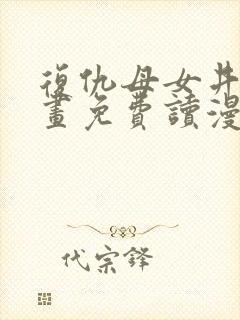 復仇母女丼漫
畫免費讀漫
代宗鋒